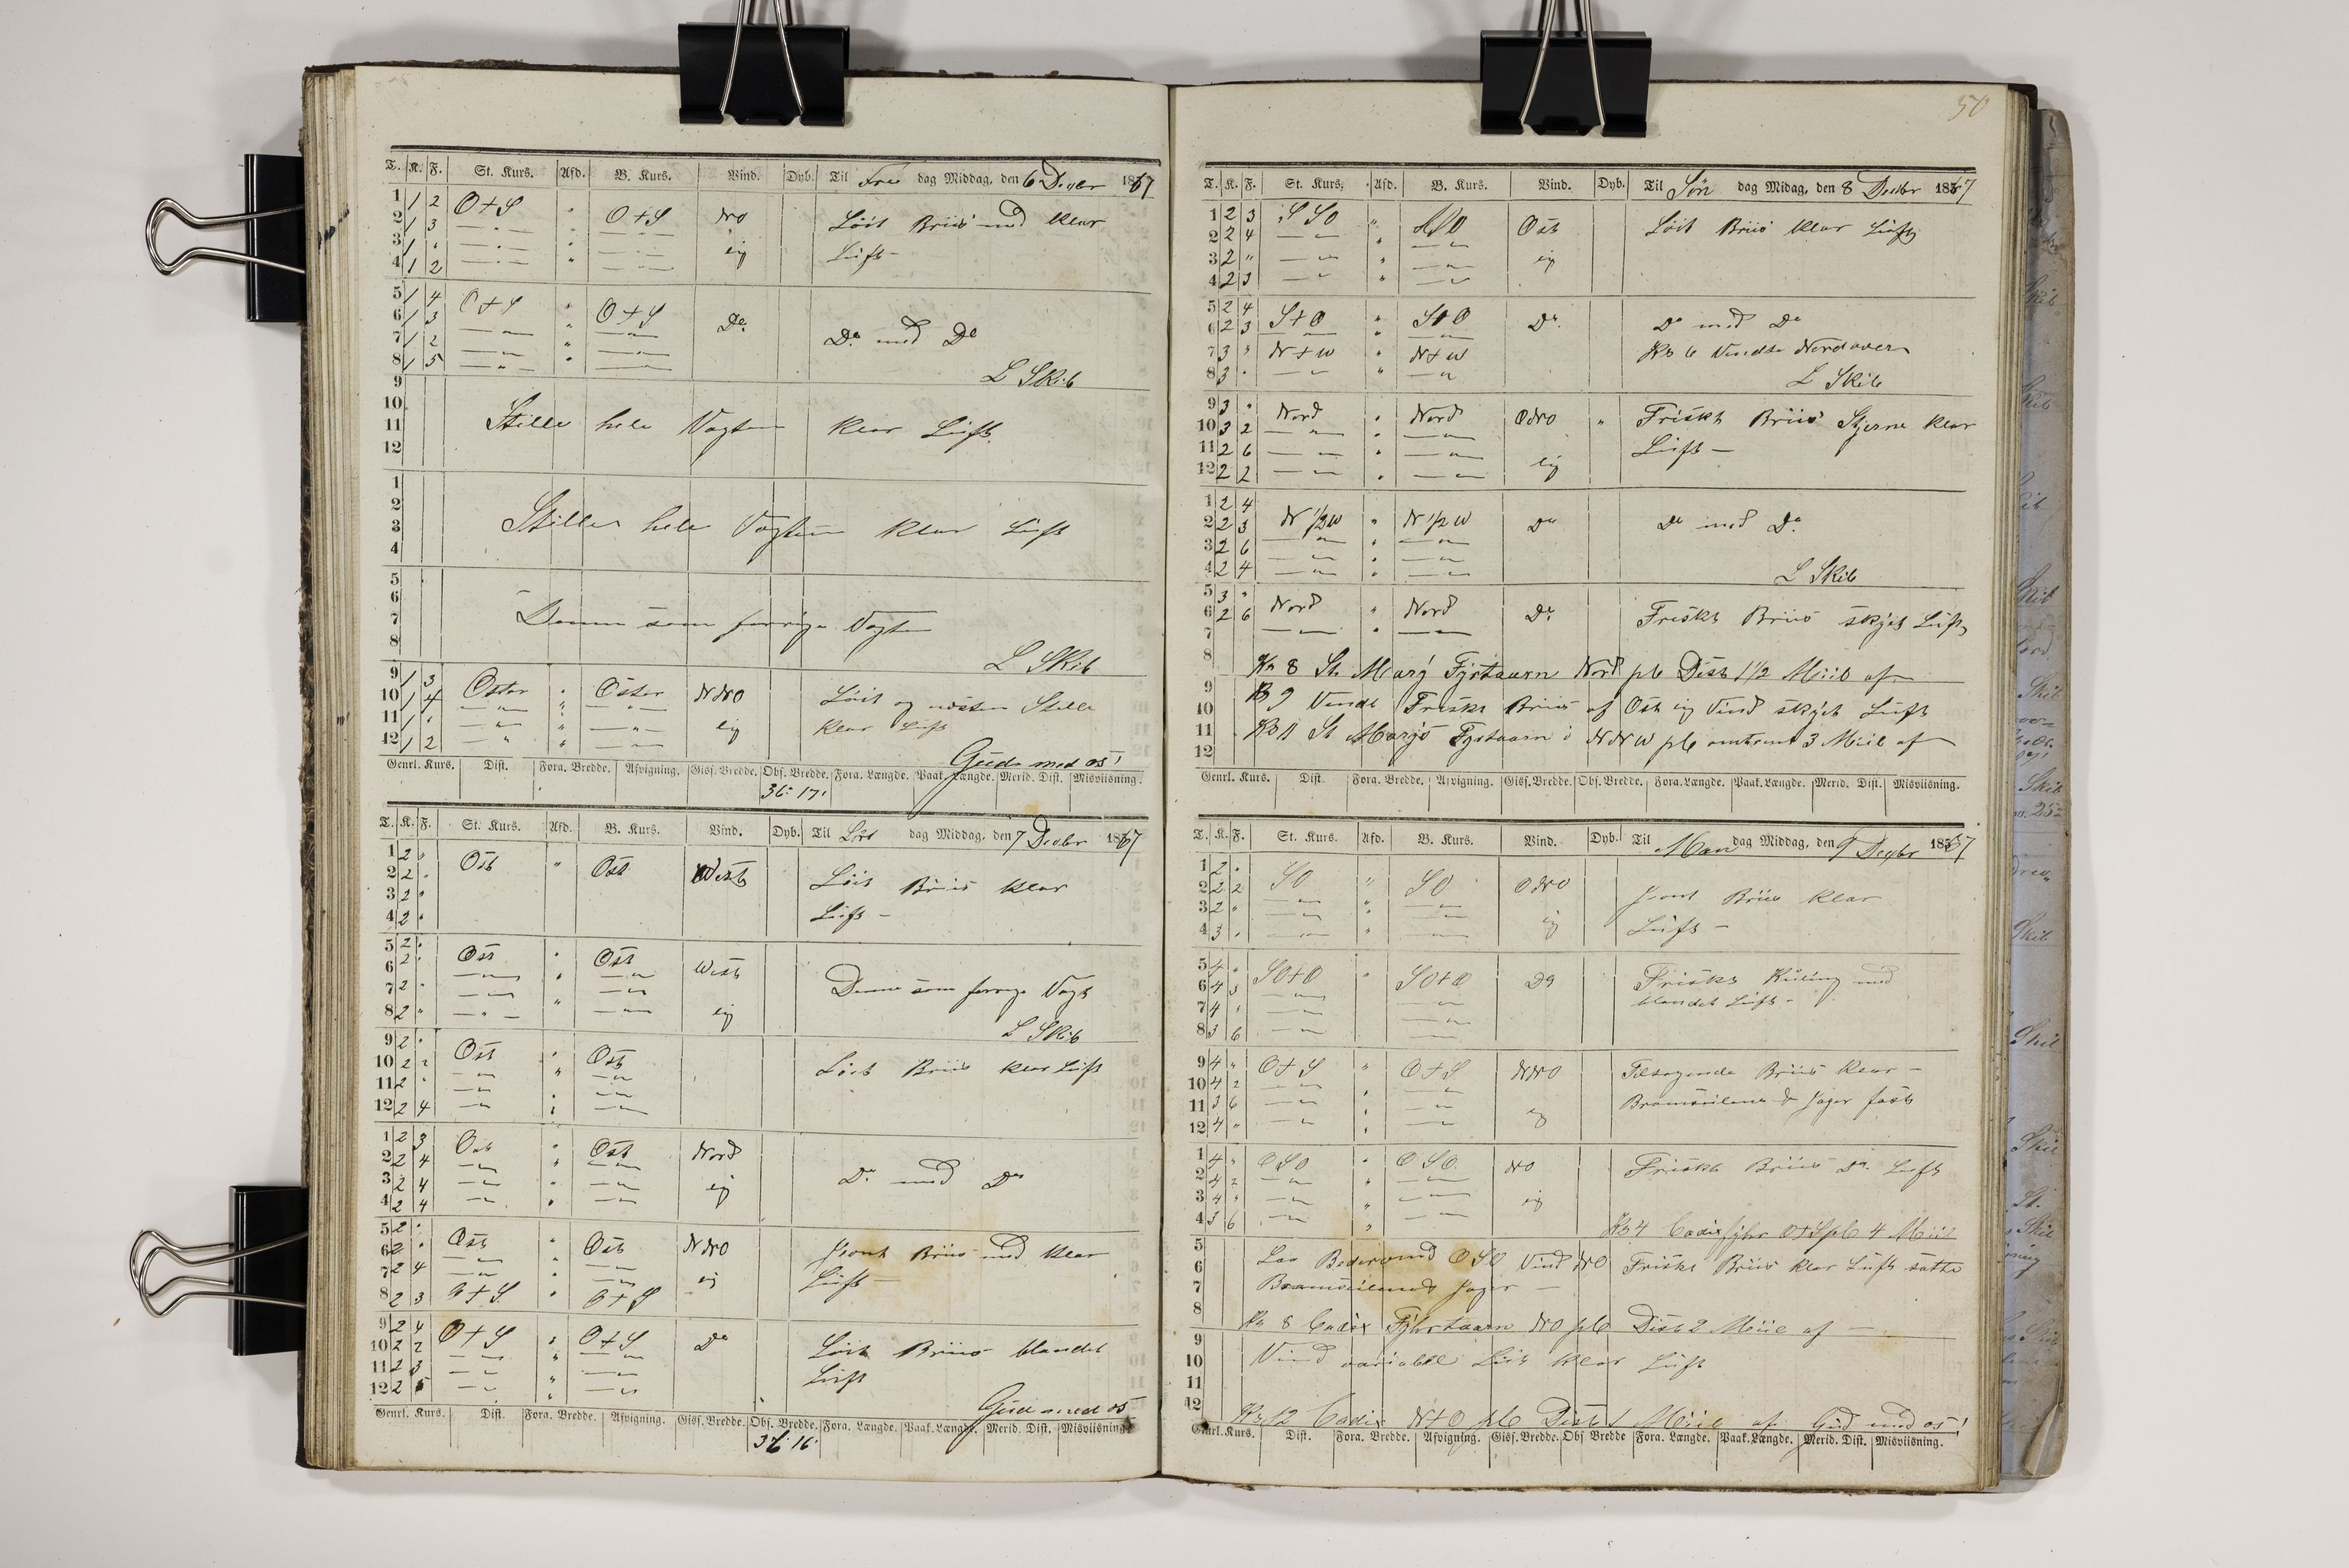 50
T. K. F. St. Kurs. Afd. B. Kurs. Vind. Dyb. Til Fre dag Middag, den 6 1867
1 1 2 O+S " O+S NO Löit Briis med klar
2 1 3 Lüft
3 1 " eij
4 1 2
5 1 4 O+S " O+S Do
6 1 3 Do med Do
7 1 2
8 1 5 L Skib
9
10 Stille hele Vagten klar Lüft
11
12
1
2
3 Stille hele Vagten klar Lüft
4
5
6
7 Denne som forrige Vagten
8 L Skib
9 1 3 Oster " Oster NNO Löit og næsten Stille
10 1 4
11 1 " eij klar Lüft
12 1 2 Gud med os!
Genrl. Kurs. Dist. Fora. Bredde. Afvigning. Gisf. Bredde. Obs. Bredde. Fora. Længde. Paak. Længde. Merid. Dist. Misviisning.
36: 17:
T. K. F. St. Kurs. Afd. B. Kurs. Vind. Dyb. Til Lör dag Middag, den 7 Decbr 1867
1 2 " Ost " Ost West Löit Briis klar
2 2 "
3 2 " Lüft
4 2 "
5 2 " Ost " Ost West
6 2 " Denne som forrige Vagt
7 2 "
8 2 " eij L Skib
9 2 " Ost " Ost Löit Briis klar Lüft
10 2 2
11 2 "
12 2 4
1 2 3 Ost " Ost Nord
2 2 4 Do med Do
3 2 4 eij
4 2 4
5 2 " Ost " Ost NNO Jevnt Briis med klar
6 2 "
7 2 4 eij Lüft
8 2 3 O+S " O+S
9 2 4 O+S " O+S Do Löit Briis blandet
10 2 2
11 2 3 Lüft
12 2 5 Gud med os
Genrl. Kurs. Dist. Fora. Bredde. Afvigning. Gisf. Bredde. Obs. Bredde. Fora. Længde. Paak. Længde. Merid. Dist. Misviisning.
36: 16:
T. K. F. St. Kurs. Afd. B. Kurs. Vind. Dyb. Til Sön dag Midag, den 8 Decbr 1867
1 2 3 SSO " SSO Ost Löit Briis klar Lüft
2 2 4
3 2 " eij
4 2 3
5 2 4 S+O " S+O Do Do med Do
6 2 3
7 3 " N+W " N+W Kl 6 Vendte Nordover
8 3 " L Skib
9 3 " Nord " Nord ONO " Friskt Briis Stjerne klar
10 3 2
11 2 6 eij Lüft
12 2 2
1 2 4
2 2 3 N 1/2 W " N 1/2 W Do Do med Do
3 2 6
4 2 4 L Skib
5 3 " Nord " Nord Do Friskt Briis skyet Lüft
6 2 6
7
8 Kl 8 St. Mary Fyrtaarn Nord pl Dist 1 1/2 Miil af
9 Kl 9 Vendt Friskt Briis af Ost eij Vind skyet Lüft
10
11 Kl 11 St Marys Fyrtaarn i NNW pl omtrent 3 Miil af
12
Genrl. Kurs. Dist. Fora. Bredde. Afvigning. Gisf. Bredde. Obs. Bredde. Fora. Længde. Paak. Længde. Merid. Dist. Misviisning.
T. K. F. St. Kurs. Afd. B. Kurs. Vind. Dyb. Til Man dag Middag, den 9 Decbr 1867
1 2 " SO " SO ONO Jevnt Briis klar
2 2 2
3 2 " eij Lüft
4 3 "
5 4 " SO+O " SO+O Do Friske Küling med
6 4 3 blandet Lüft
7 4 "
8 3 6
9 4 " O+S " O+S NNO Tiltagende Briis klar
10 4 2
11 3 6 eij Bramseilene & Jager fast
12 4 "
1 4 " OSO " OSO NO Friskt Briis Do Lüft
2 4 2
3 4 " eij
4 3 6 Kl 4 Cadix fyhr O+S pl 4 Miil
5
6 Laa OSO Vind NO Friskt Briis klar Lüft satte
7 Bramseilene & Jager
8 Kl 8 Cadix Fyhrtaarn NO pl Dist 2 Miil af
9
10 Vind variable Löit klar Lüft
11
12 Kl 12 Cadix N+O pl Dist 1 Miil af Gud med os!
Genrl. Kurs. Dist. Fora. Bredde. Afvigning. Gisf. Bredde. Obs Bredde Fora. Længde. Paak. Længde. Merid. Dist. Misviisning.